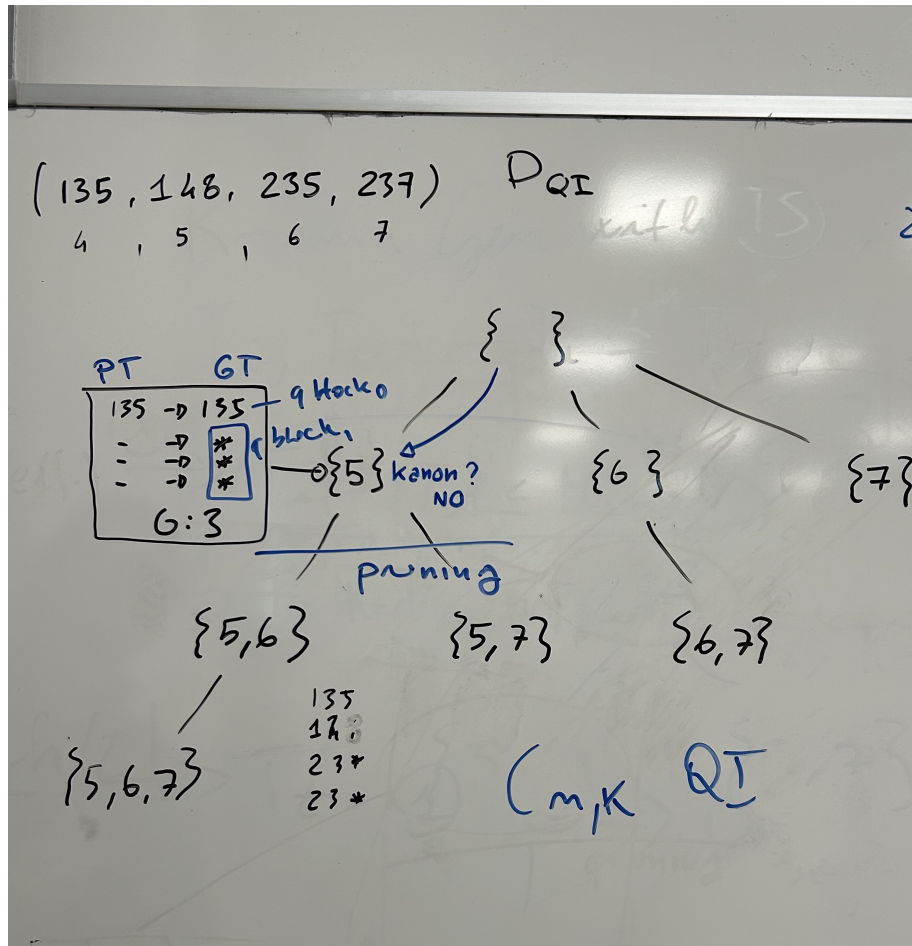 (135, 148, 235, 237) D QI
4, 5, 6 7
{ }
PT GT
135 → 135 q block0
- → * q block1
- → *
- → *
G: 3
{5} Kanon? {6} {7}
NO
pruning
{5,6} {5,7} {6,7}
135
23*
23*
{5,6,7}
(m,K QI